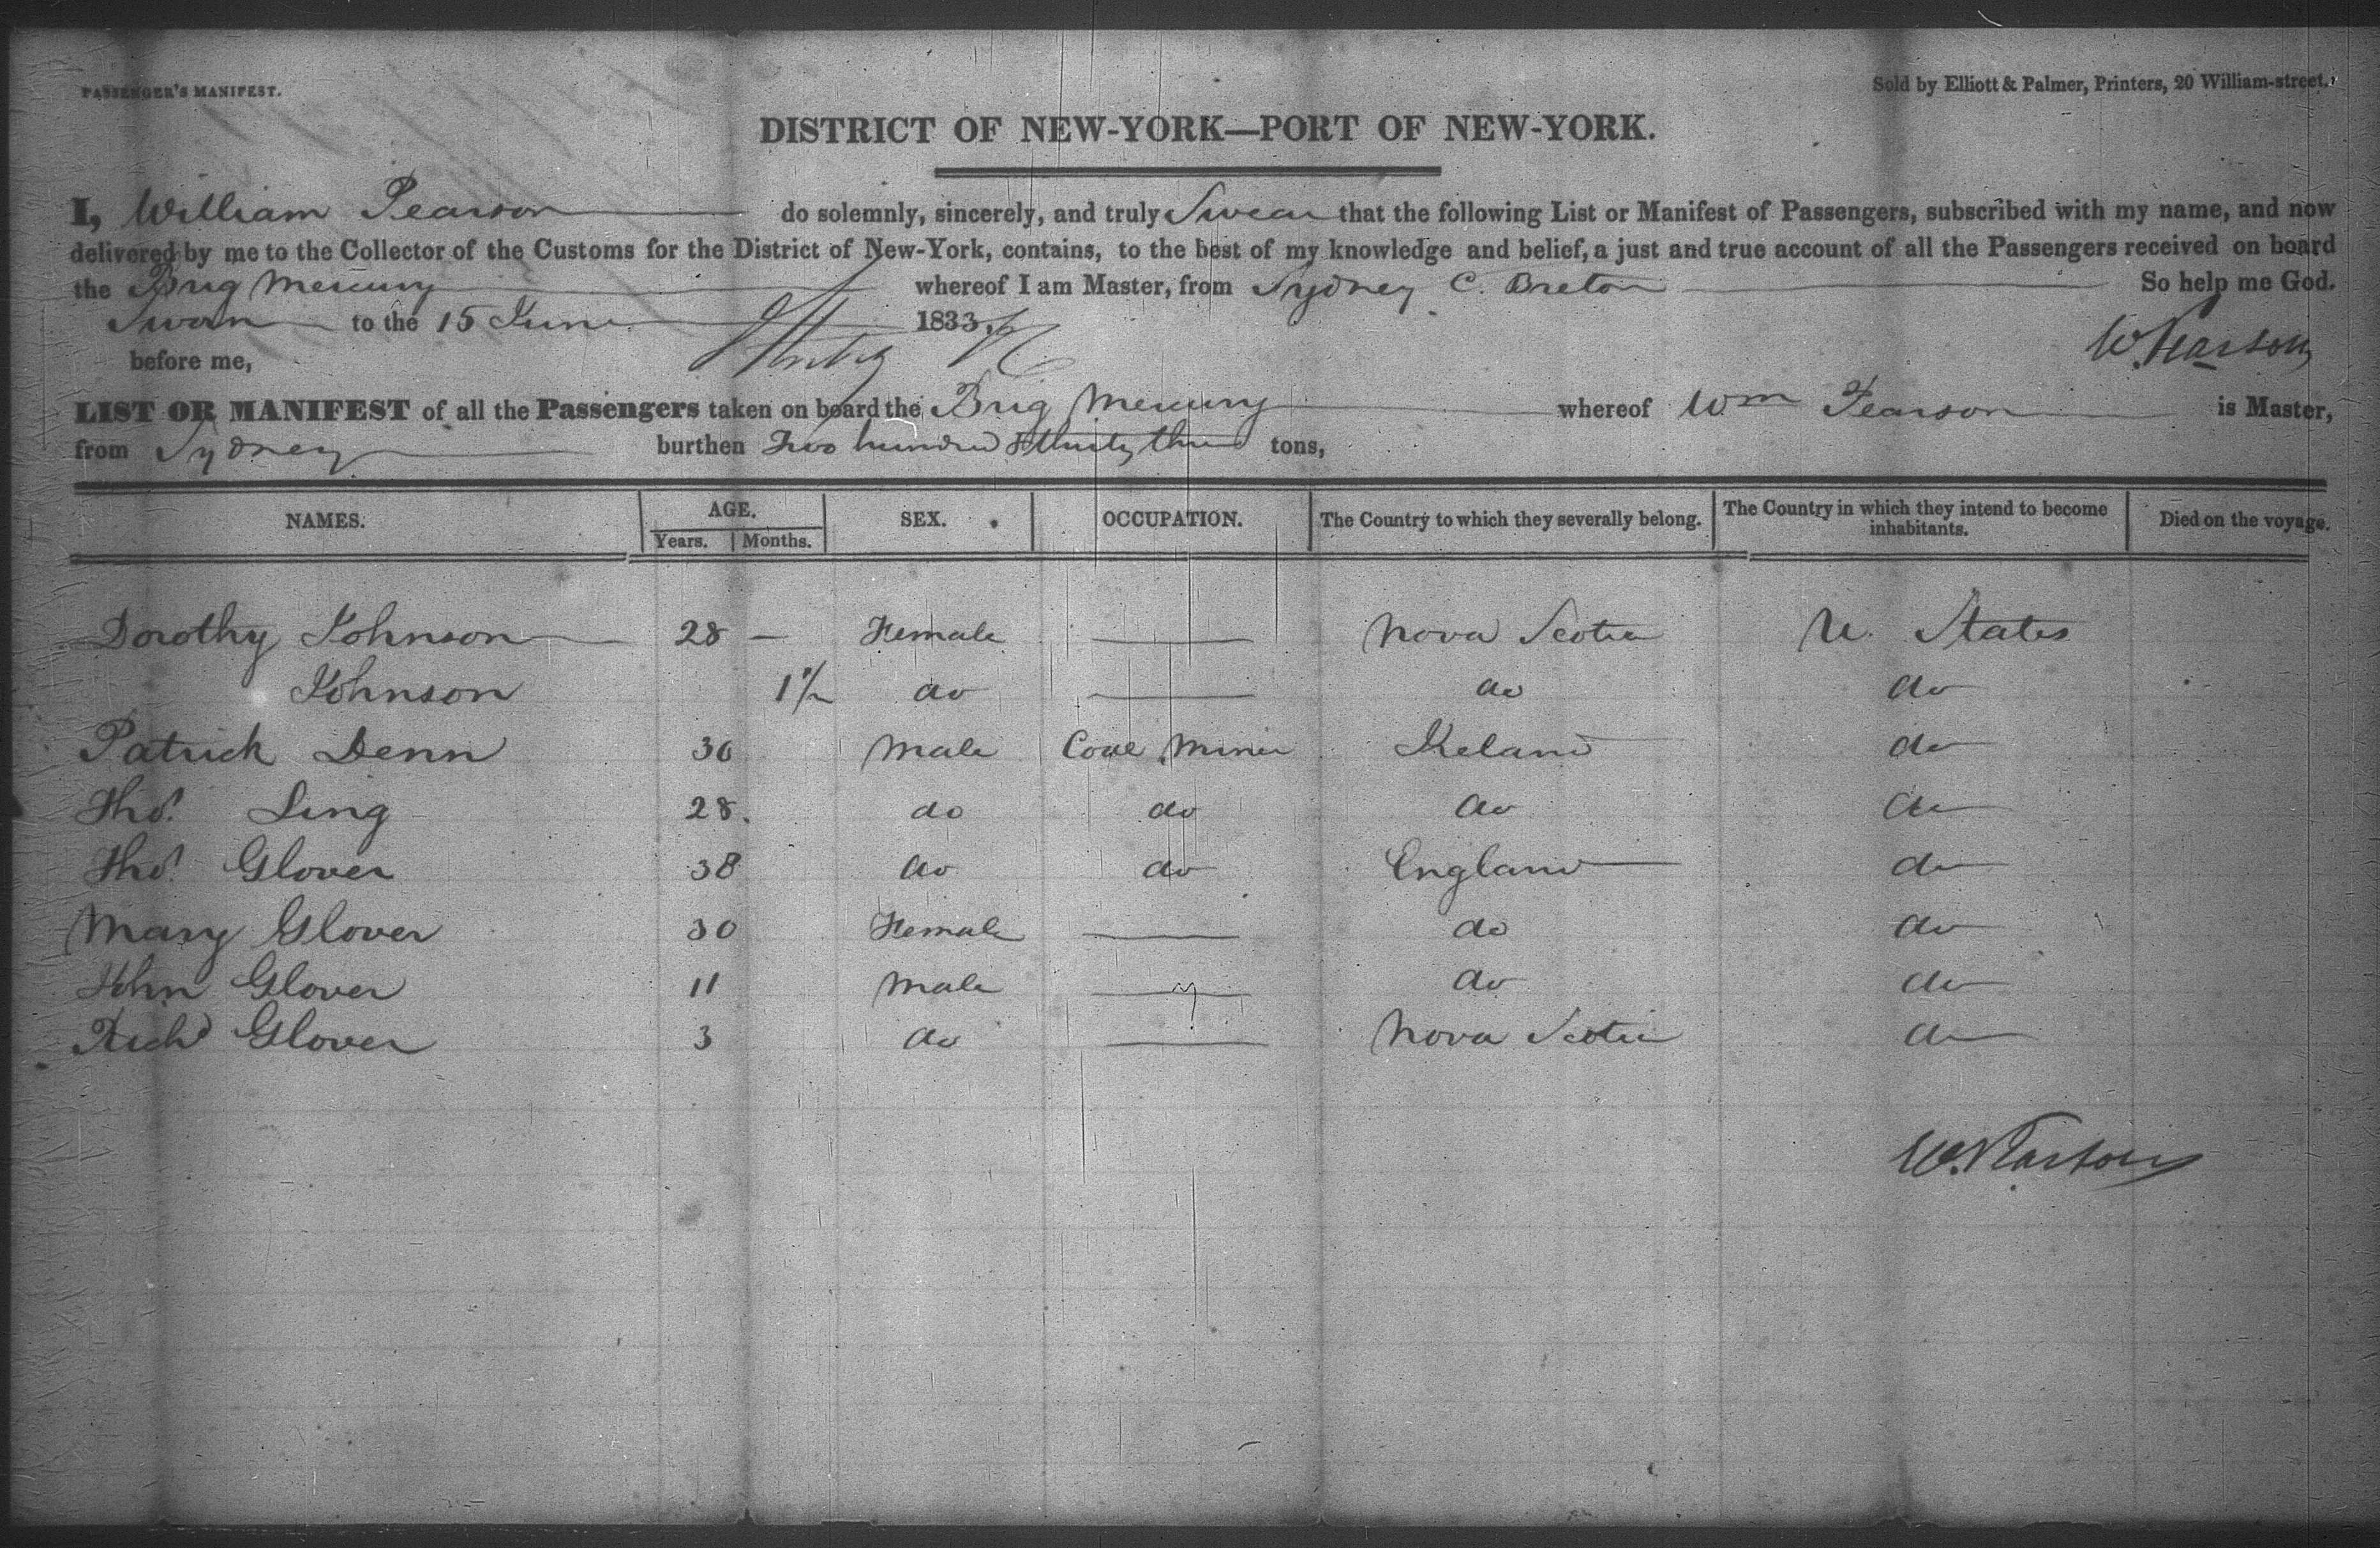 PASSENGER'S MANIFEST.
Sold by Elliott & Palmer, Printers, 20 William-street.
DISTRICT OF NEW-YORK—PORT OF NEW-YORK.
I, William Pearson do solemnly, sincerely, and truly Swear that the following List or Manifest of Passengers, subscribed with my name, and now
delivered by me to the Collector of the Customs for the District of New-York, contains, to the best of my knowledge and belief, a just and true account of all the Passengers received on board
the Brig Mercury whereof I am Master, from Sydney C. Breton So help me God.
Sworn to the 15 June 1833.
before me,
W. Pearson
LIST OR MANIFEST of all the Passengers taken on board the Brig Mercury whereof Wm Pearson is Master,
from Sydney burthen Two hundred & thirty three tons,
NAMES. AGE. SEX. OCCUPATION. The Country to which they severally belong. The Country in which they intend to become inhabitants. Died on the voyage.
Years. Months.
Dorothy Johnson 28 — Female — Nova Scotia U. States
Johnson 1½ do — do do
Patrick Denn 30 Male Coal Miner Ireland do
Thos. Ling 28. do do do do
Thos. Glover 38 do do England do
Mary Glover 30 Female — do do
John Glover 11 Male — do do
Richd Glover 3 do — Nova Scotia do
W. Pearson